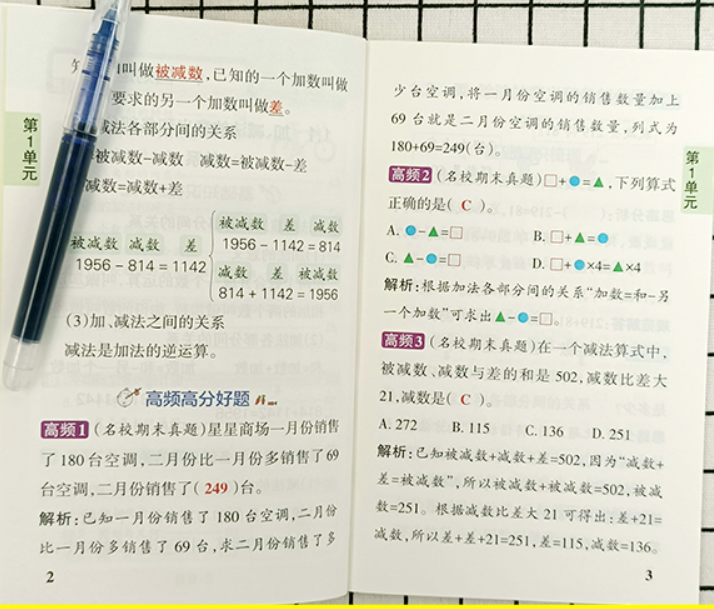 叫做被减数,已知的一个加数叫做
要求的另一个加数叫做差。
减法各部分间的关系
被减数-减数 减数=被减数-差
减数=减数+差
被减数 差 减数
1956-1142=814
被减数 减数 差
1956-814=1142
减数 差 被减数
814+1142=1956
(3)加、减法之间的关系
减法是加法的逆运算。
高频高分好题
高频1(名校期末真题)星星商场一月份销售
了180台空调,二月份比一月份多销售了69
台空调,二月份销售了(249)台。
解析:已知一月份销售了180台空调,二月份
比一月份多销售了69台,求二月份销售了多
2
第1单元
少台空调,将一月份空调的销售数量加上
69台就是二月份空调的销售数量,列式为
180+69=249(台)。
高频2(名校期末真题)□+●=▲,下列算式
正确的是(C)。
A. ●-▲=□ B. □+▲=●
C. ▲-●=□ D. □+●×4=▲×4
解析:根据加法各部分间的关系“加数=和-另
一个加数”可求出▲-●=□。
高频3(名校期末真题)在一个减法算式中,
被减数、减数与差的和是502,减数比差大
21,减数是(C)。
A. 272 B. 115 C. 136 D. 251
解析:已知被减数+减数+差=502,因为“减数+
差=被减数”,所以被减数+被减数=502,被减
数=251。根据减数比差大21可得出:差+21=
减数,所以差+差+21=251,差=115,减数=136。
3
第1单元